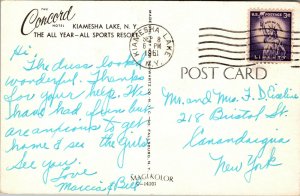 THE
Concord
HOTEL
KIAMESHA LAKE, N.Y.
THE ALL YEAR - ALL SPORTS RESORT
Hi,
The dress looked
wonderful. Thanks
for your help. We
have had fun but
are anxious to get
home & see the Girls.
See you.
Love
Marcia & Bill
KIAMESHA LAKE
6 PM
1961
N.Y.
U.S. POSTAGE
3¢
LIBERTY
POST CARD
Mr. and Mrs. F. D.
218 Bristol St.
Canandaigua
New York
MAGIKOLOR